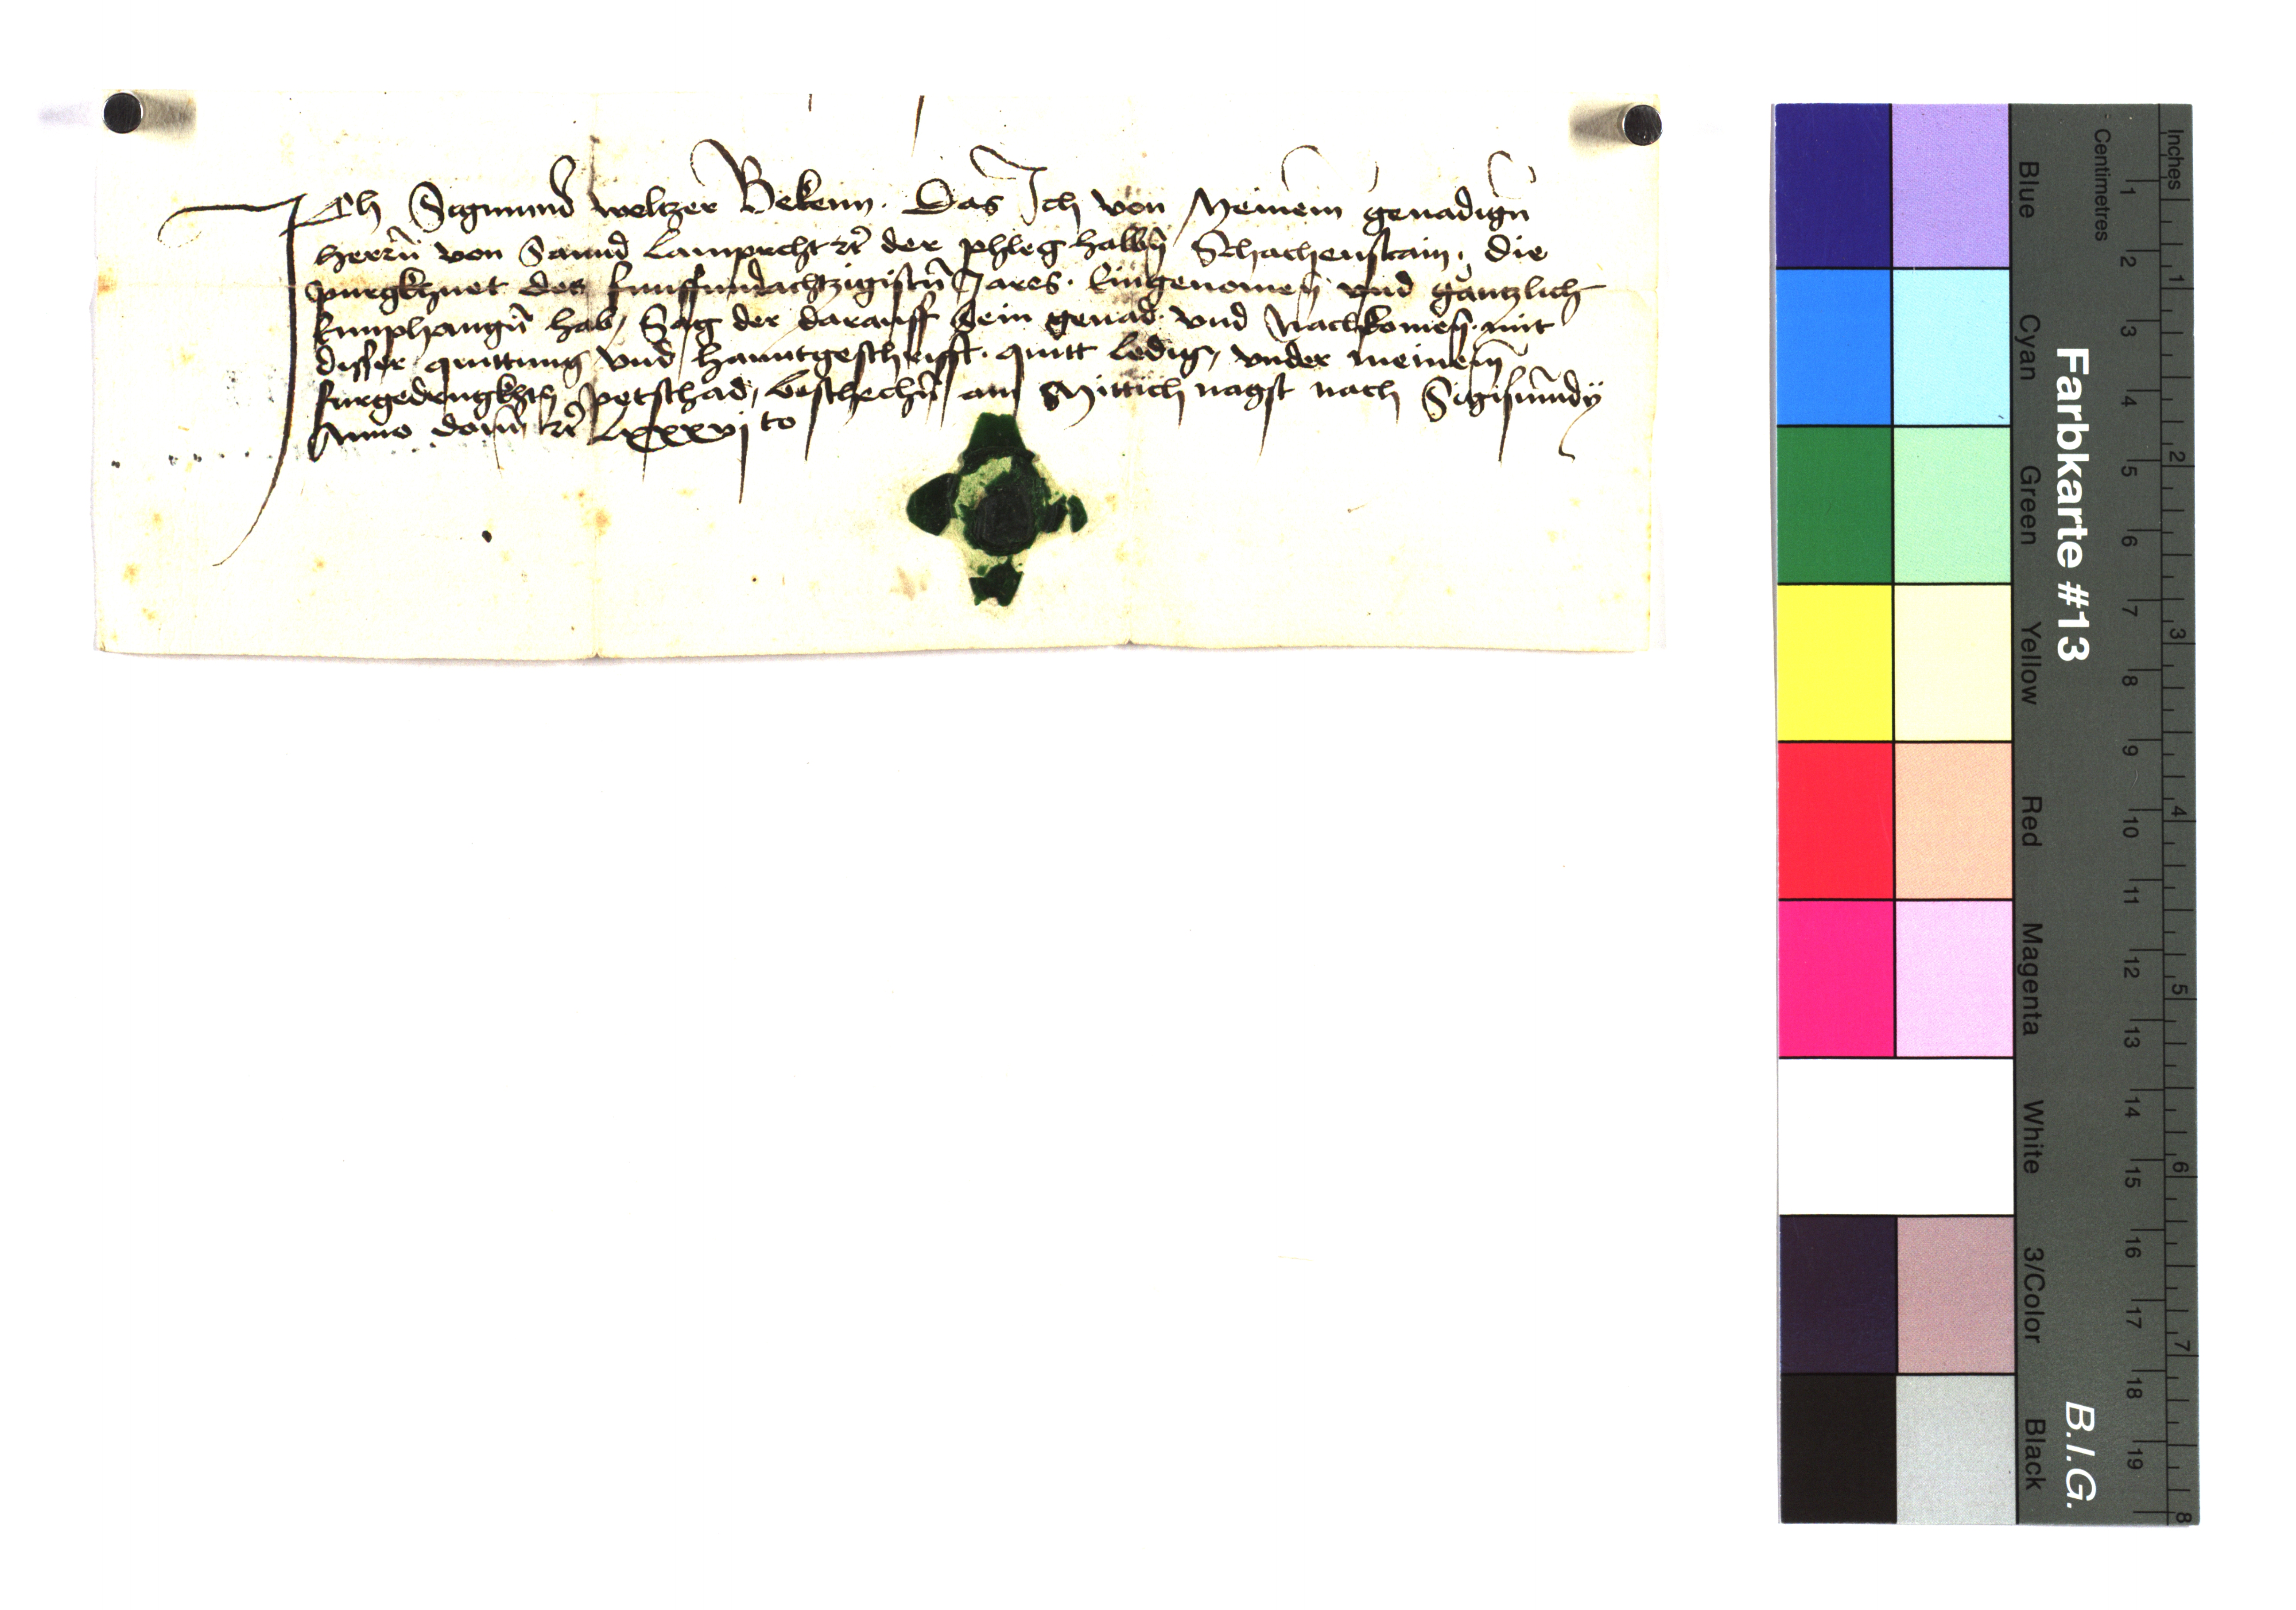 Ich Sigmund Weltzer Bekenn. Das Ich von Meinem genadign̄
herrn̄ von Sannd Lamprecht rc̄ der phleg halbn̄ Schachenstain. die
purgkhuet des funffundachtzigistn̄ Jares. Eingenomen̄ vnd gantzlich
Emphangn̄ hab, Sag der darauff Sein genad. vnd Nachkomen̄ mit
disser quittung vnd hanntgeschrifft. quitt ledig, vnder meinem
furgedrugkhtn̄ petschad, beschechn̄ am Mittich nagst nach Sigismundy
Anno domī rc̄ Lxxxvj to
Inches
Centimetres
1 2 3 4 5 6 7 8 9 10 11 12 13 14 15 16 17 18 19
1 2 3 4 5 6 7 8
Farbkarte #13
B.I.G.
Blue
Cyan
Green
Yellow
Red
Magenta
White
3/Color
Black